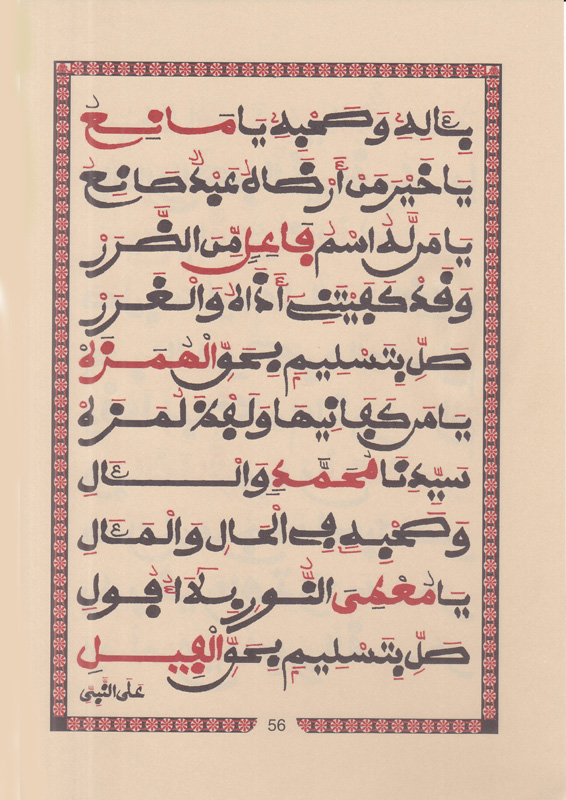 بِـَٔالِهِ وَصَحْبِهِ يَا مَانِعُ
يَا خَيْرَ مَنْ أَرْضَاهُ عَبْدٌ صَانِعُ
يَا مَن لَّهُ اسْمُ فَاعِلٍ مِّنَ الضَّرَرْ
وَقَدْ كَفَيْتَنِي أَذَاهُ وَالْغَرَرْ
صَلِّ بِتَسْلِيمٍ بِحَقِّ الْهُمَزَهْ
يَا مَن كَفَانِيهَا لُمَزَهْ
سَيِّدِنَا مُحَمَّدٍ وَالْآلِ
وَصَحْبِهِ فِي الْحَالِ وَالْمَآلِ
يَا مُعْطِيَ النُّورِ بِلَا أُفُولِ
صَلِّ بِتَسْلِيمٍ بِحَقِّ الْفِيلِ
عَلَى النَّبِيِّ
56